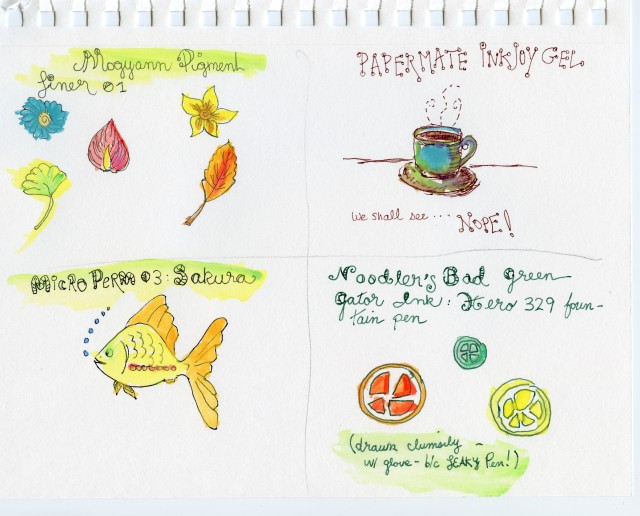 Mogyann Pigment
Liner 01
PAPERMATE INKJOY GEL
We shall see... NOPE!
Micro Perm 03: Sakura
Noodler's Bad Green
Gator Ink: Hero 329 foun-
tain pen
(drawn clumsily -
w/ glove - b/c LEAKY Pen!)